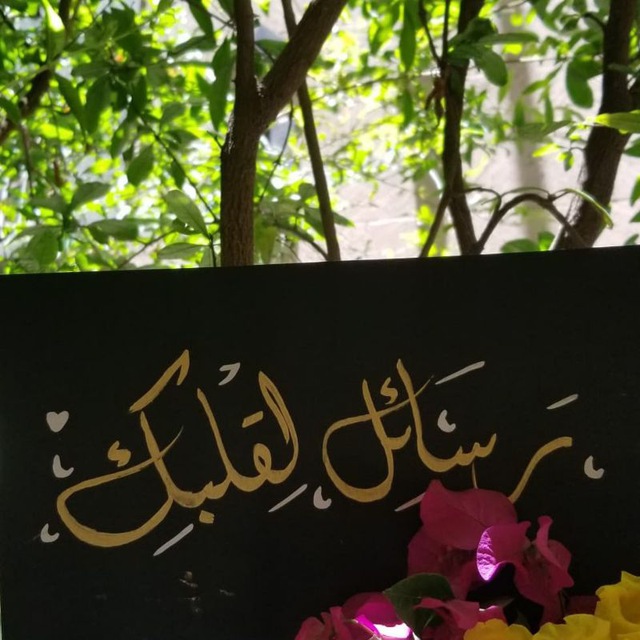 رسائل لقلبك